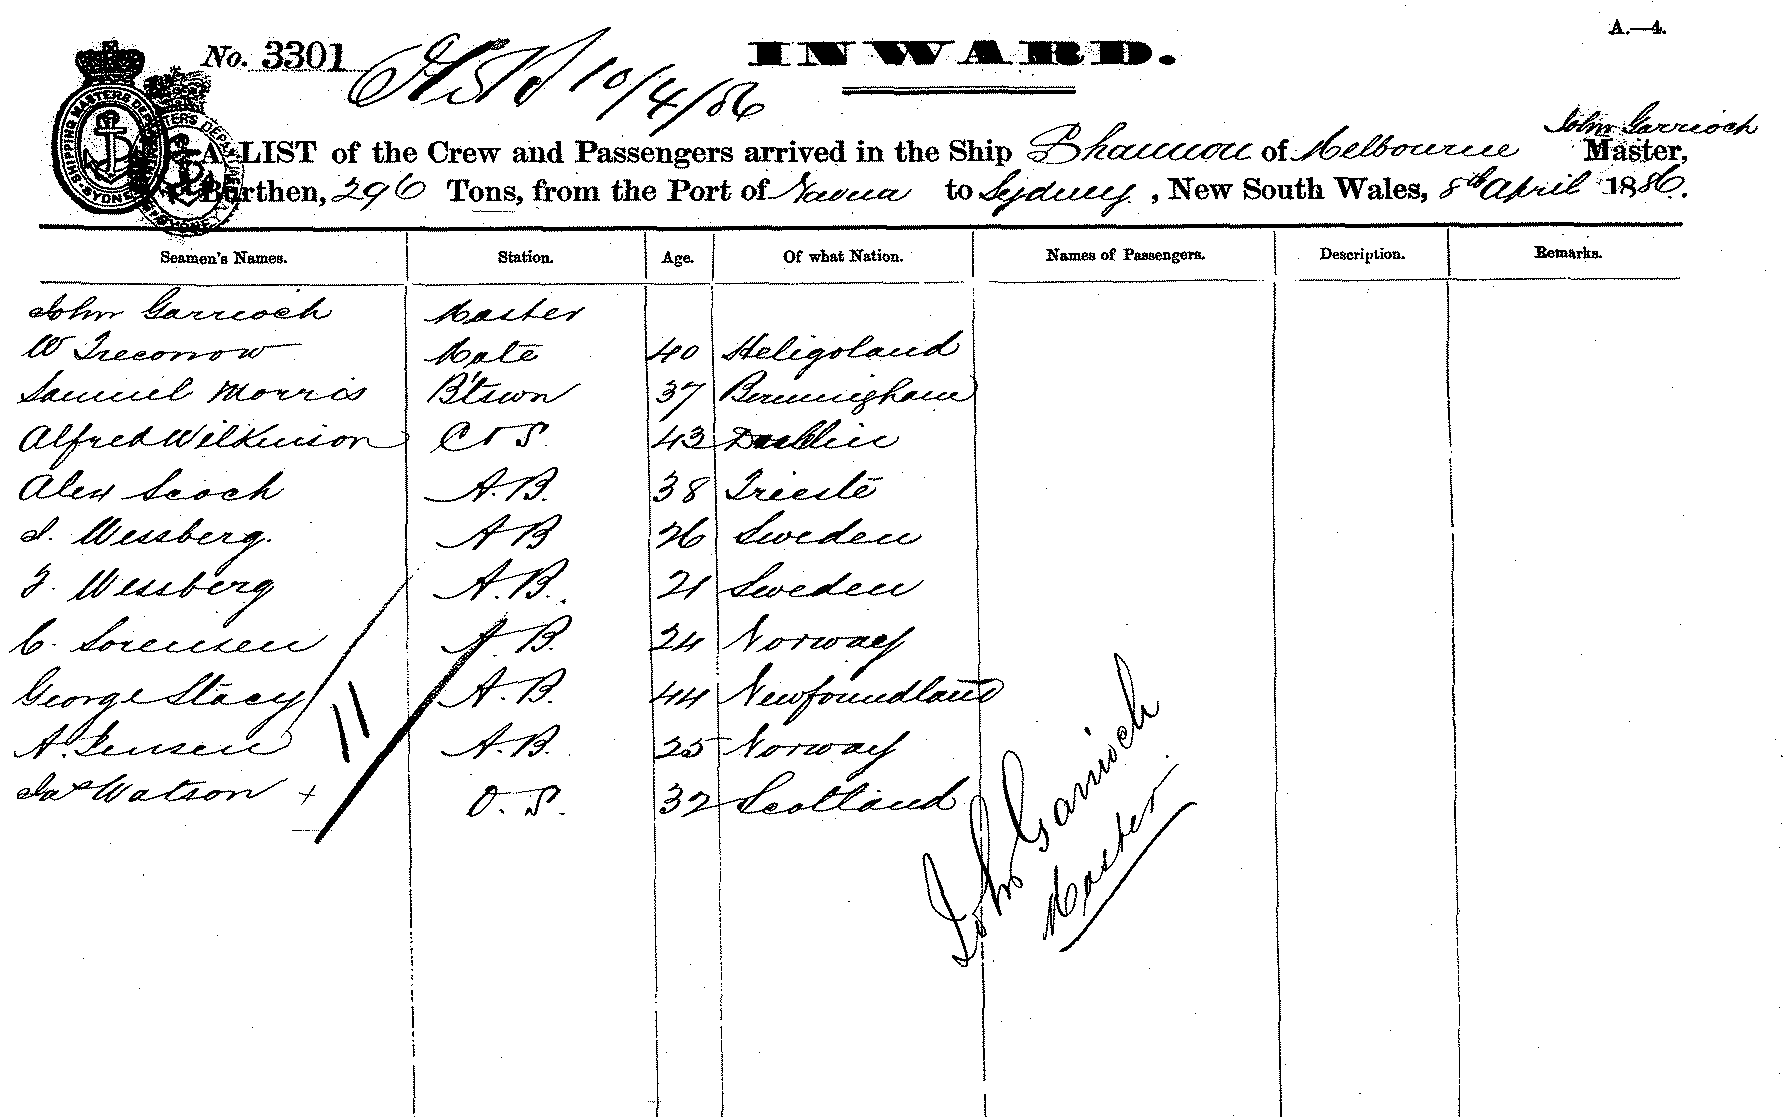 A.—4.
No. 3301 10/4/86 INWARD.
John Garrioch
A LIST of the Crew and Passengers arrived in the Ship Shannon of Melbourne Master,
Burthen, 296 Tons, from the Port of to Sydney, New South Wales, 8th April 1886.
Seamen's Names. Station. Age. Of what Nation. Names of Passengers. Description. Remarks.
John Garrioch Master
W Treconow Mate 40 Heligoland
Samuel Morris B'tswn 37 Birmingham
Alfred Wilkinson C & S 43 Dublin
Alex Scoch A.B. 38 Trieste
I. Wessberg. A B 26 Sweden
F. Wessberg A.B. 21 Sweden
C. Sorensen A.B. 24 Norway
George Stacy A.B. 44 Newfoundland
A. Jensen A.B. 25 Norway
11
Jas Watson + O.S. 32 Scotland
John Garrioch
Master